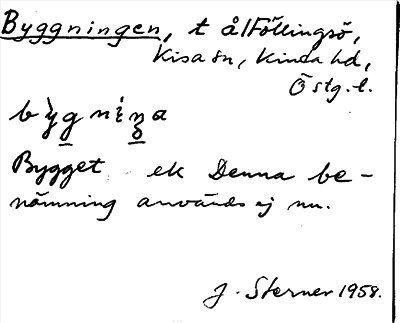 Byggningen, t ålFöllingsö,
Kisa sn, Kinda hd,
Östg.l.
Bygget ek Denna be-
nämning används ej nu.
J. Sterner 1958.